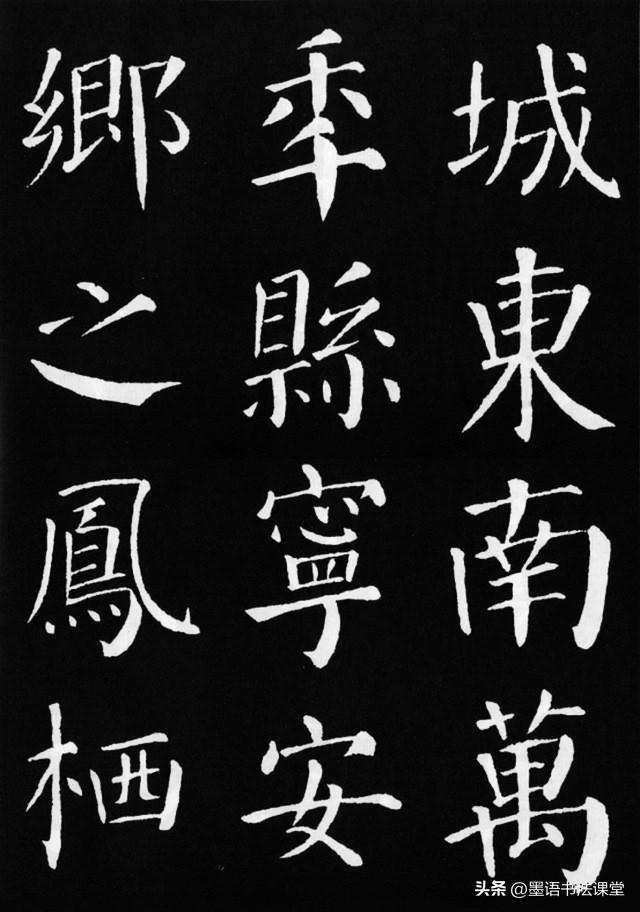 城東南萬
秊縣寧安
鄉之鳳栖
头条 @墨语书法课堂